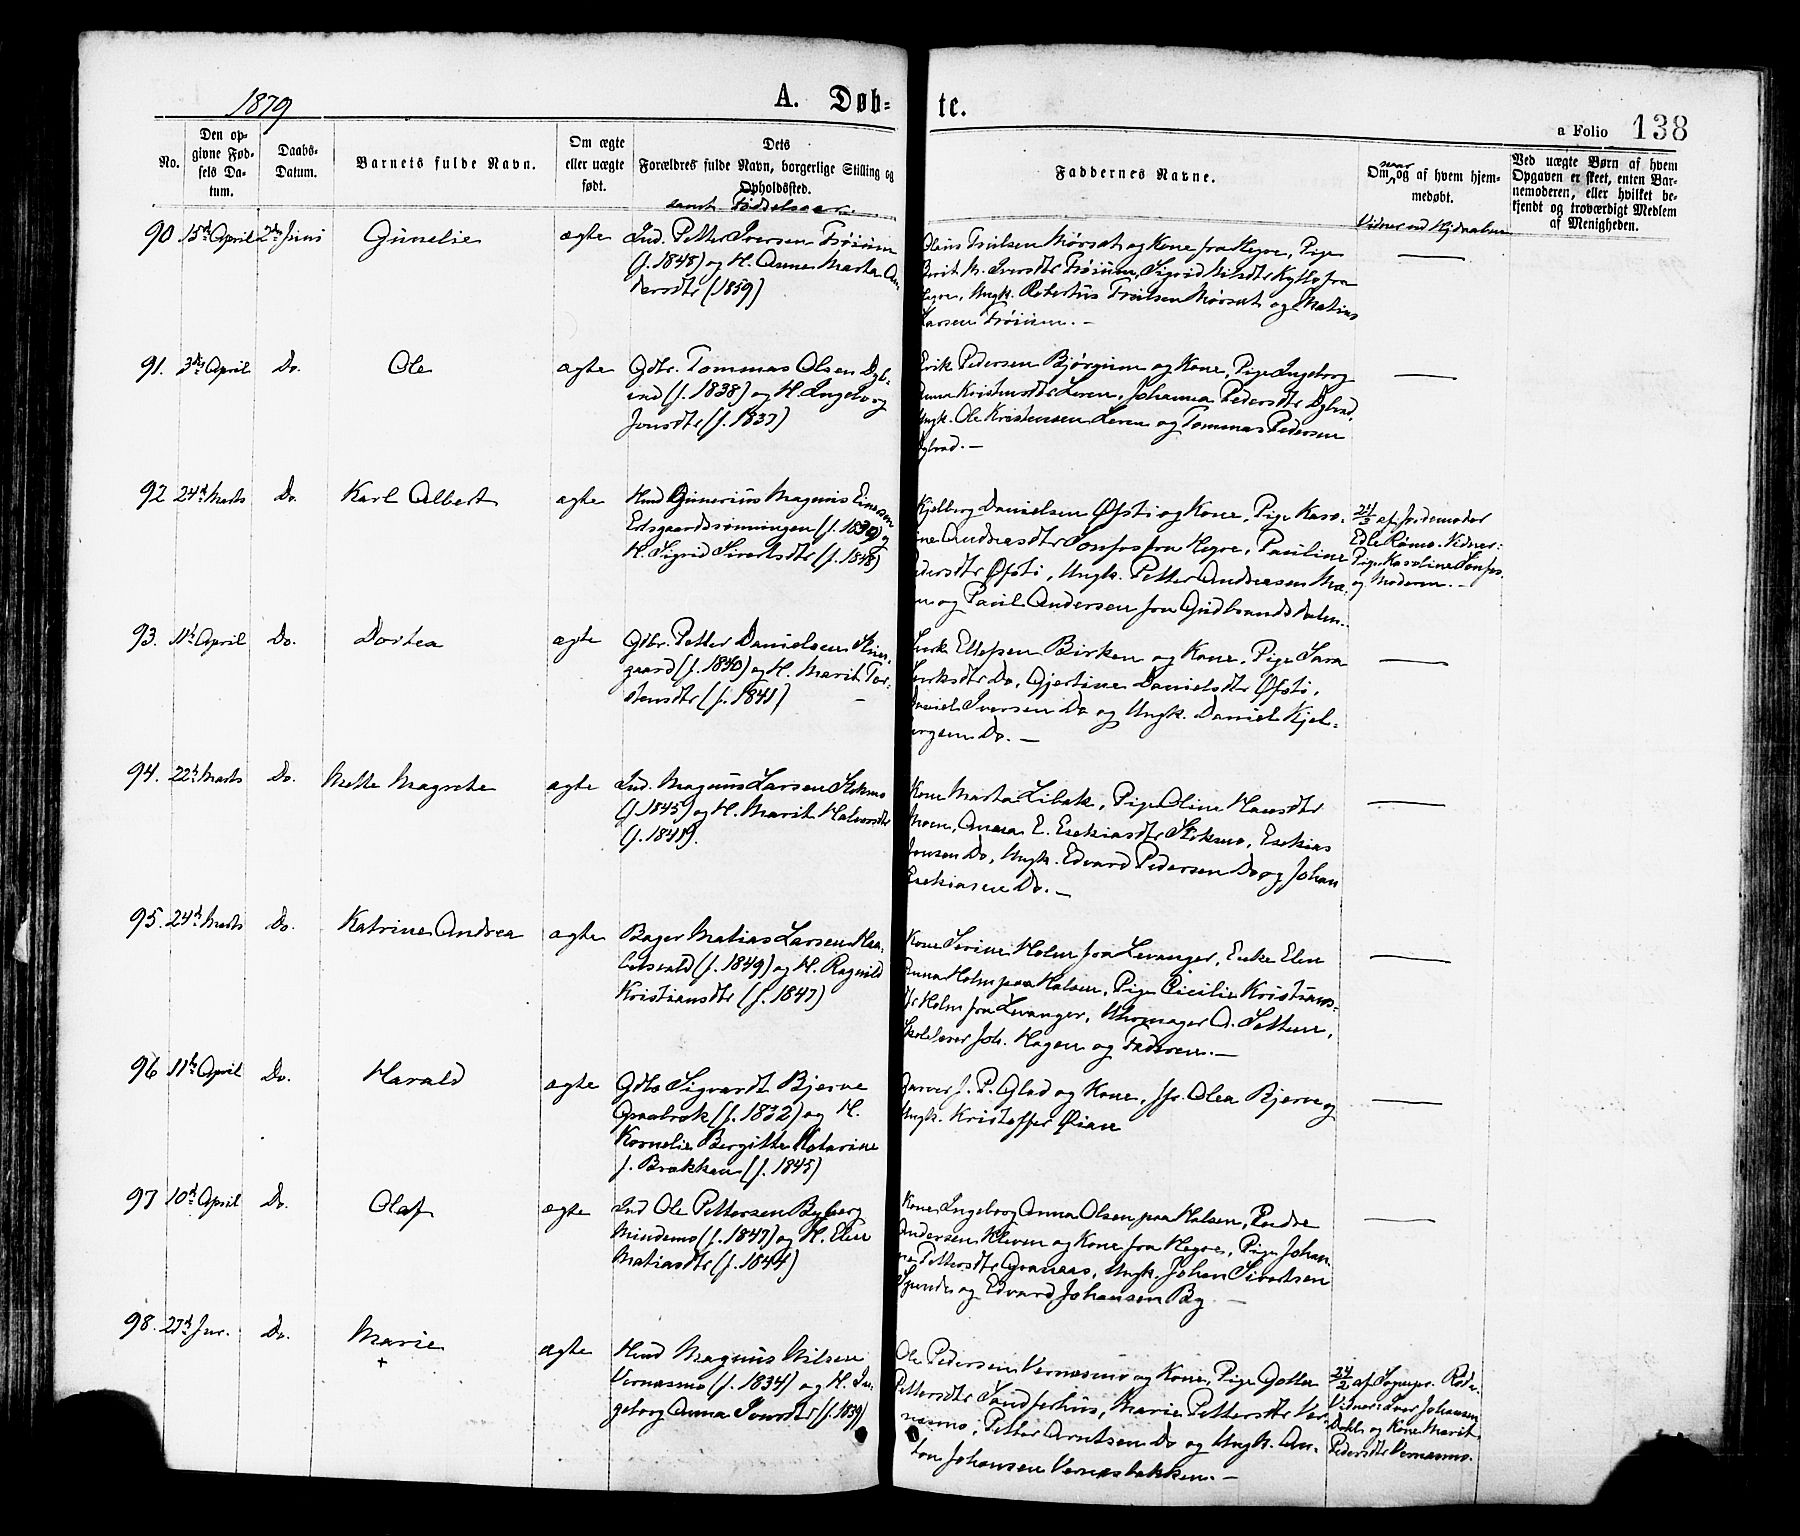 1879
A. Døb-
te.
a Folio 138
No.
Den op-
givne Fød-
sels Da-
tum.
Daabs-
Datum.
Barnets fulde Navn.
Om ægte
eller uægte
født.
Dets
Forældres fulde Navn, borgerlige Stilling og
Opholdssted.
samt Fødselsaar
Faddernes Navne.
naar
Om og af hvem hjem-
medøbt.
Ved uægte Børn af hvem
Opgaven er skeet, enten Bar-
nemoderen, eller hvilket be-
kjendt og troværdigt Medlem
af Menigheden.
90 15de April 2den Juni Gunelie ægte Ind. Petter Iversen
(f. 1848) og H. Anne Marta An-
dersdtr (1859)
Olaus Troilsen Mørsat og Kone fra Hegre, Pige
Berit M. Iversdtr, Sigrid Nilsdtr Kyllo fra
Hegre, Ungk. Robertus Troilsen Mørsat og Matias
Larsen
91. 3die April Do. Ole ægte Gdbr. Tommas Olsen Dyb-
vad (f. 1838) og H. Ingeborg
Jonsdtr (f. 1837)
Erik Pedersen Bjørgum og Kone, Pige Ingeborg
Anna Kristensdtr Leren, Johanna Pedersdtr Dybvad,
Ungk. Ole Kristensen Leren og Tommas Pedersen
Dybvad. —
92 24de Marts Do. Karl Albert ægte Hmd Gunerius Magnus Einersen
(f. 1839) og
H. Sigrid Sivertsdtr (f. 1848)
Kjelberg Danielsen Øfsti og Kone, Pige Karo-
line Andreasdtr Sonfos fra Hegre, Pauline
Pedersdtr Øfsti, Ungk. Petter Andreasen
og Paul Andersen fra Gudbrandsdalen.
24/3 af Jordemoder
Edle Rømo. Vidner:
Pige Karoline Sonfos.
og Moderen. —
93. 11te April Do. Dortea ægte Gdbr. Petter Danielsen
(f. 1840) og H. Marit Tor-
stensdtr (f. 1841) —
Sverk Ellefsen Birken og Kone, Pige Sara
Do, Gjertine Danielsdtr Øfsti,
Daniel Iversen Do og Ungk. Daniel Kjel-
bergsen Do. —
94. 22de Marts Do. Mette Magrete ægte Ind. Magnus Larsen Stokmo
(f. 1845) og H. Marit Halvorsdtr
Kone Marta Libak, Pige Oline Hansdtr
Moen, Anna E. Esekiasdtr Stokmo, Esekias
Jonsen Do, Ungk. Edvard Pedersen Do og Johan
Esekiasen Do. —
95. 24de Marts Do. Katrine Andrea ægte Bager Matias Larsen
(f. 1849) og H. Ragnild
Kristiansdtr (f. 1847)
Kone Serine Holm fra Levanger, Enke Elen
Anna Holm paa Halsen, Pige Cicilie Kristians-
dtr Holm fra Levanger, Uhrmager A. Settem,
Skolelærer Joh. Hagen og Faderen. —
96 11te April Do. Harald ægte Gdbr Sigvardt Bjerve
Graabræk (f. 1832) og H.
Kornelie Bergitte Katarine
f. Brækkan (f. 1845)
Garver J. P. Glad og Kone, Jfr. Olea Bjerve og
Ungk. Kristoffer Øian
97 10de April Do. Olaf ægte Ind Ole Pettersen Byberg
Mindemo (f. 1847) og H. Elen
Matiasdtr (f. 1844)
Kone Ingeborg Anna Olsen paa Halsen, Endre
Andersen Kleven og Kone fra Hegre, Pige Johan-
na Pettersdtr Granaas, Ungk. Johan Sivertsen
og Edvard Johansen By —
98. 27de Jnr. Do. Marie
+ ægte Hmd Magnus Nilsen
Vernæsmo (f. 1834) og H. In-
geborg Anna Jonsdtr (f. 1839)
Ole Pedersen Vernæsmo og Kone, Pige Golla
Pettersdtr Sandferhus, Marie Pettersdtr Ver-
næsmo, Petter Arntsen Do og Ungk. An-
ton Johansen Vernæsbakken. —
24/2 af Sogepr.
Vidner: Johansen
og Kone Marit
Pedersdtr Vernæsmo.